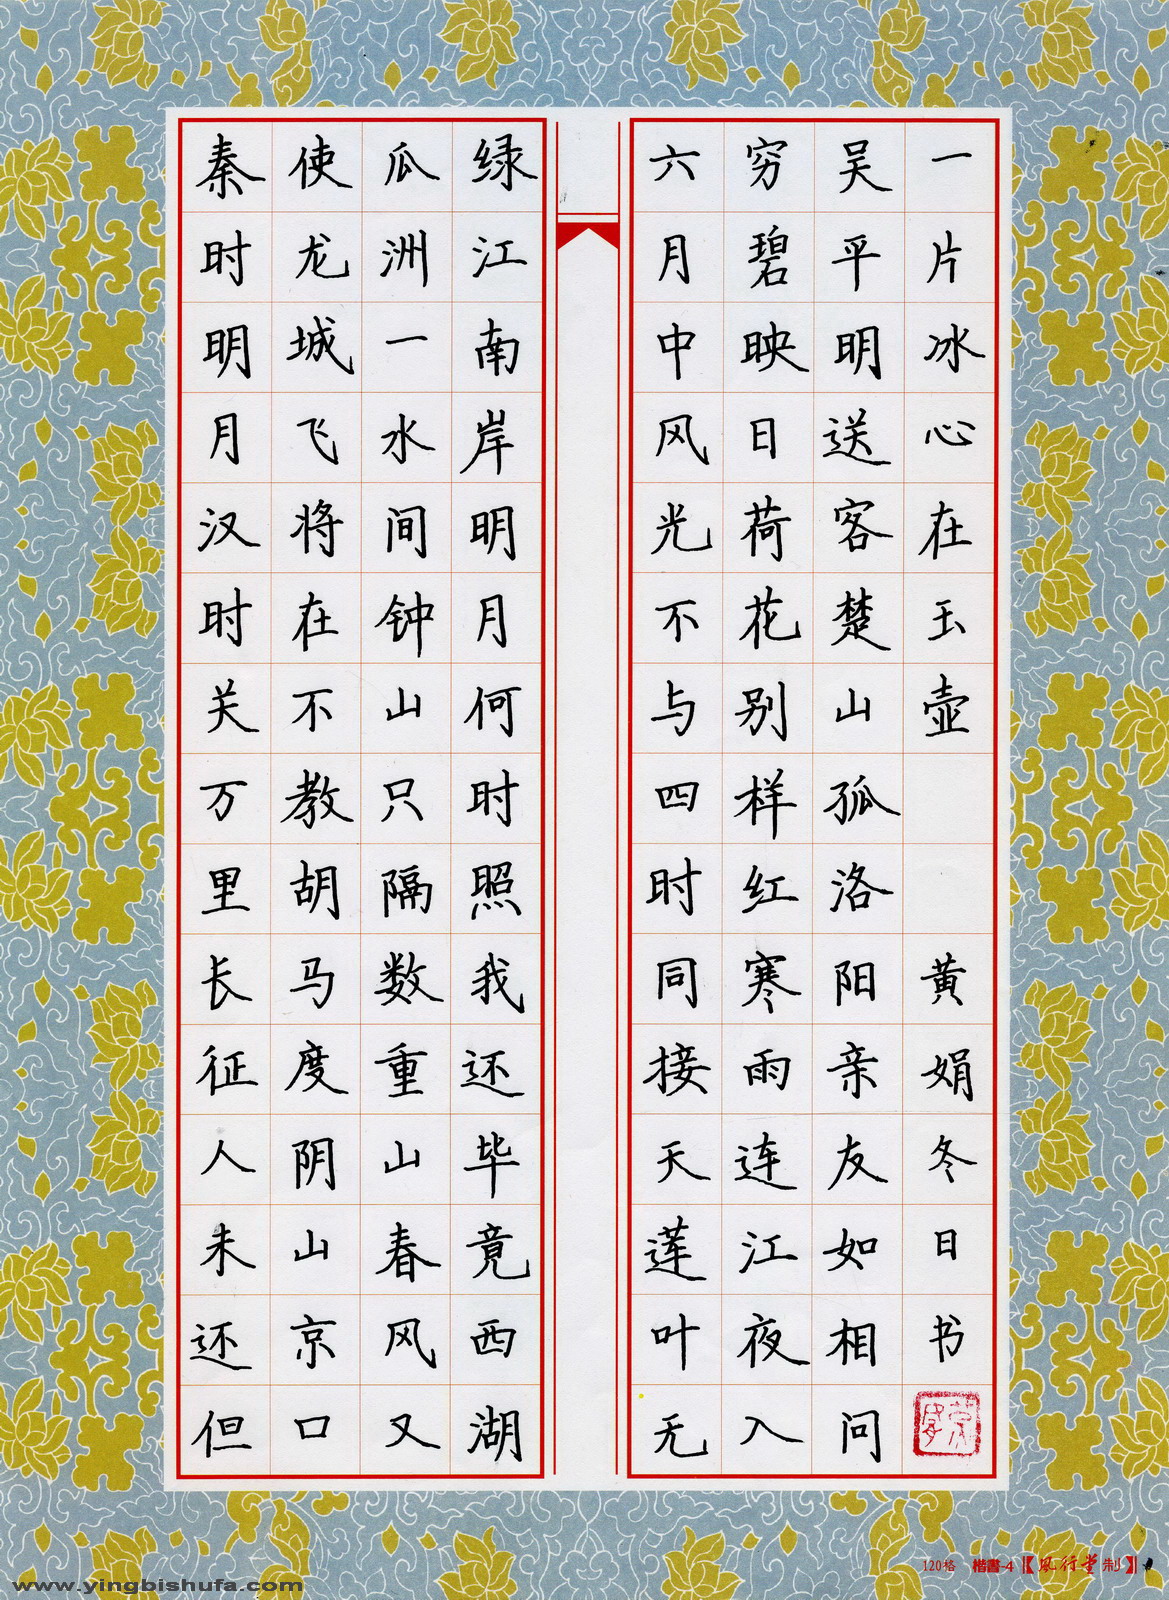 秦时明月汉时关万里长征人未还但
使龙城飞将在不教胡马度阴山京口
瓜洲一水间钟山只隔数重山春风又
绿江南岸明月何时照我还毕竟西湖
六月中风光不与四时同接天莲叶无
穷碧映日荷花别样红寒雨连江夜入
吴平明送客楚山孤洛阳亲友如相问
一片冰心在玉壶 黄娟冬日书
120格 楷書-4【風行堂制】
www.yingbishufa.com